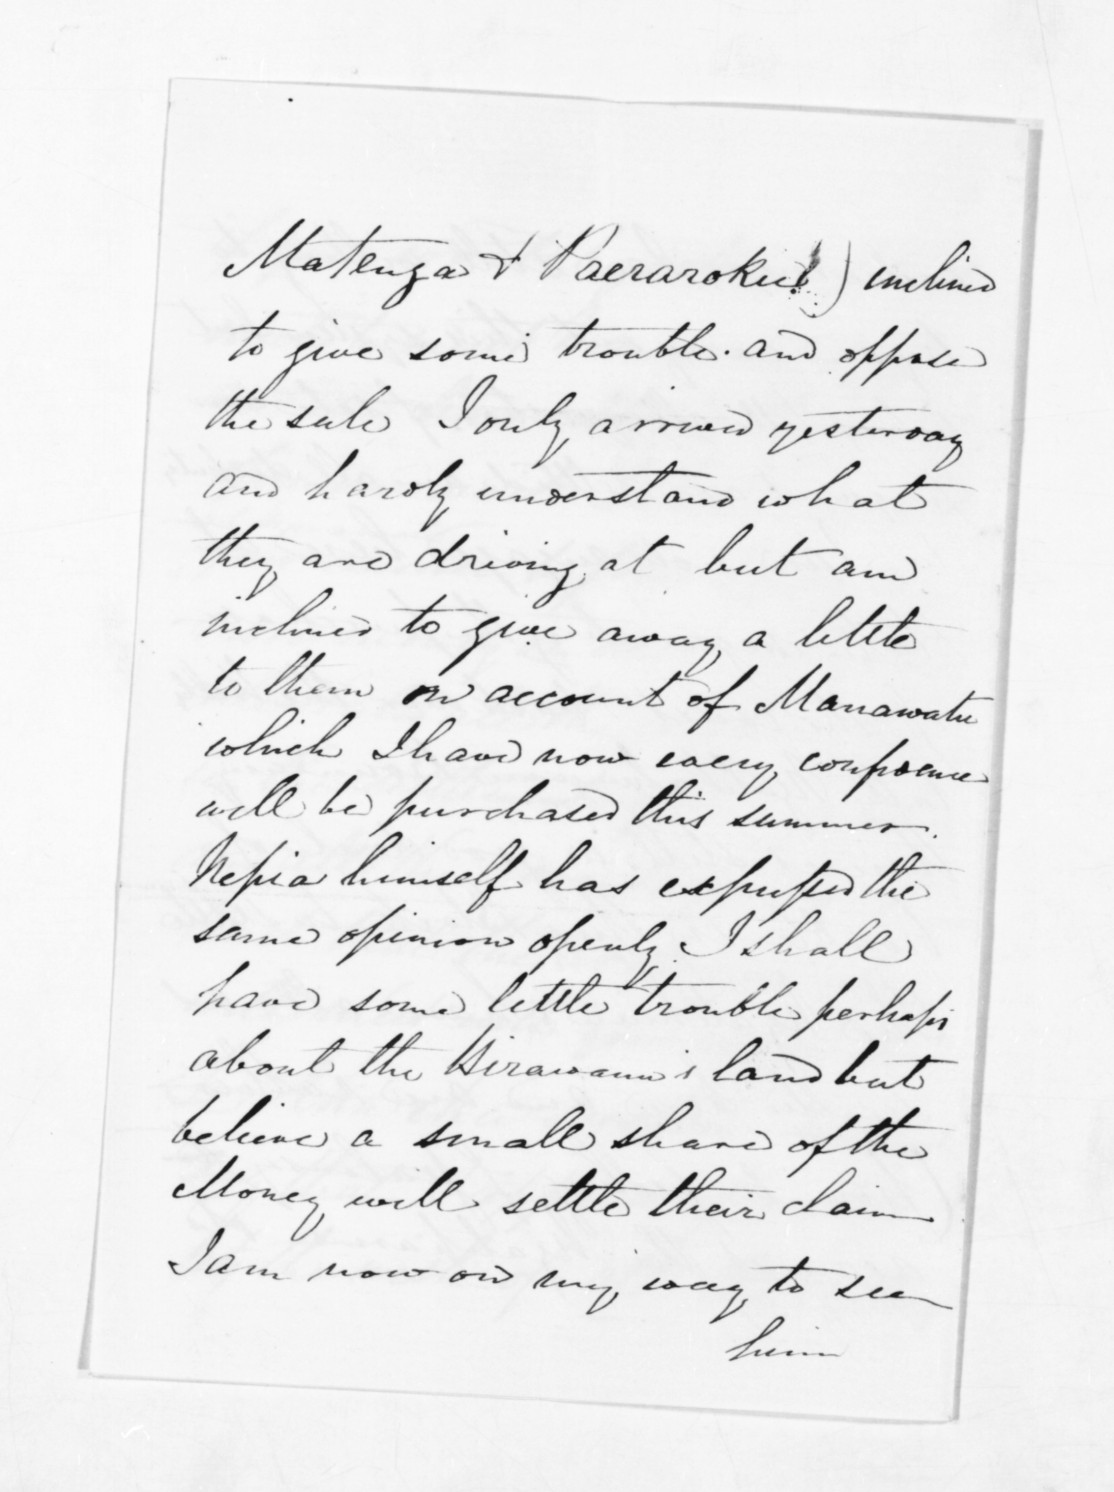 Matenga & Paerarokie) inclined
to give some trouble. and oppose
the sale I only arrived yesterday
and hardly understand what
they are driving at but am
inclined to give away a little
to them on account of Manawatu
which I have now every confidence
will be purchased this summer.
Nepia himself has expressed the
same opinion openly. I shall
have some little trouble perhaps
about the Hirawanu's land but
believe a small share of the
Money will settle their claim
I am now on my way to see
him